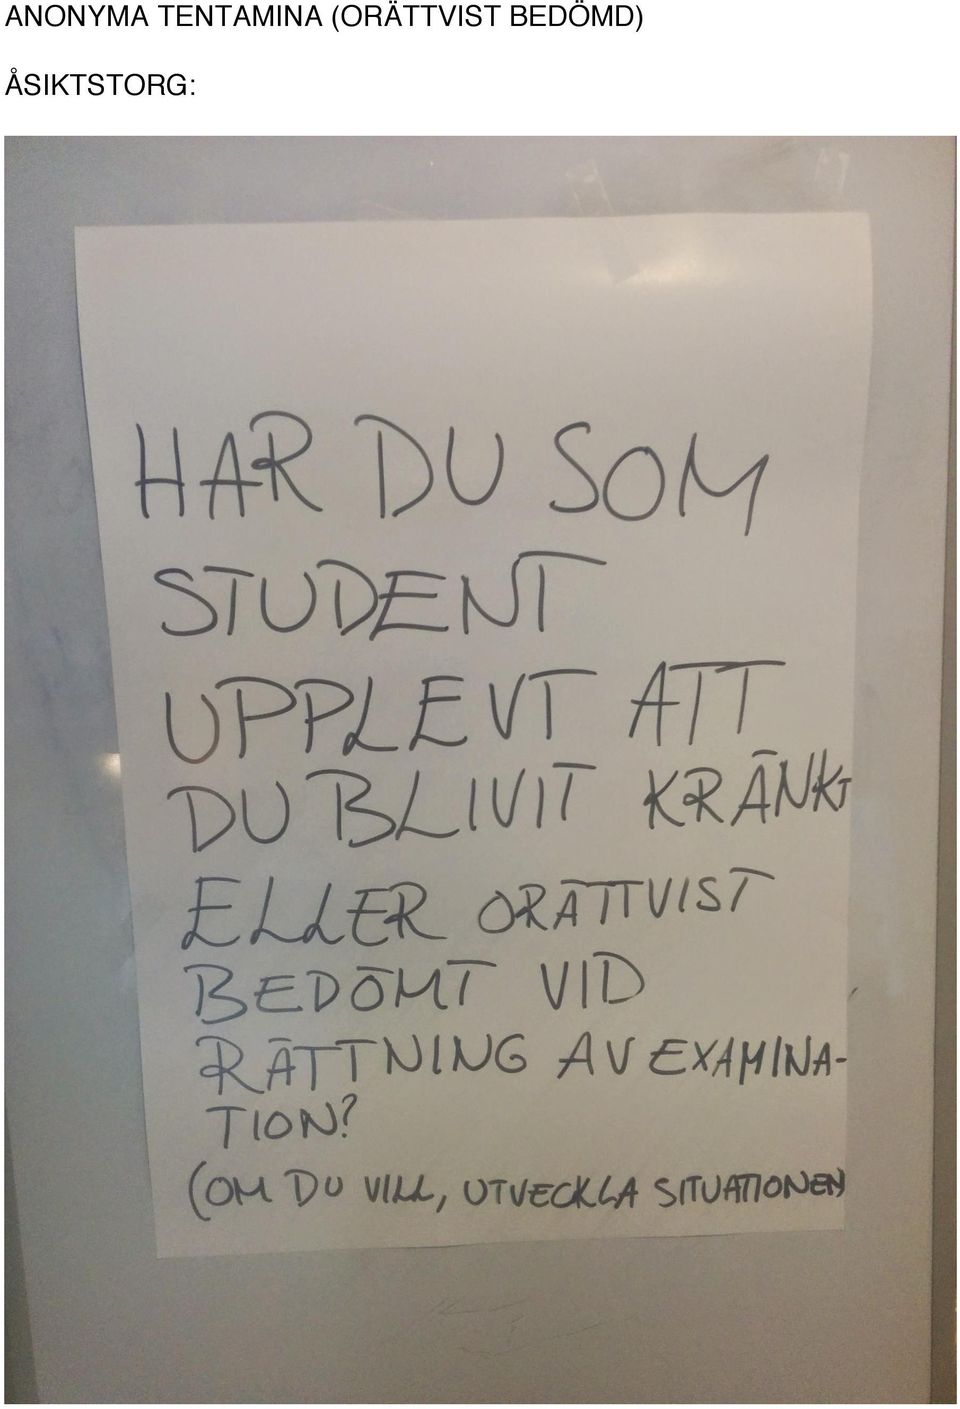 ANONYMA TENTAMINA (ORÄTTVIST BEDÖMD)
ÅSIKTSTORG:
HAR DU SOM
STUDENT
UPPLEVT ATT
DU BLIVIT KRÄNKT
ELLER ORÄTTVIST
BEDÖMT VID
RÄTTNING AV EXAMINA-
TION?
(OM DU VILL, UTVECKLA SITUATIONEN)